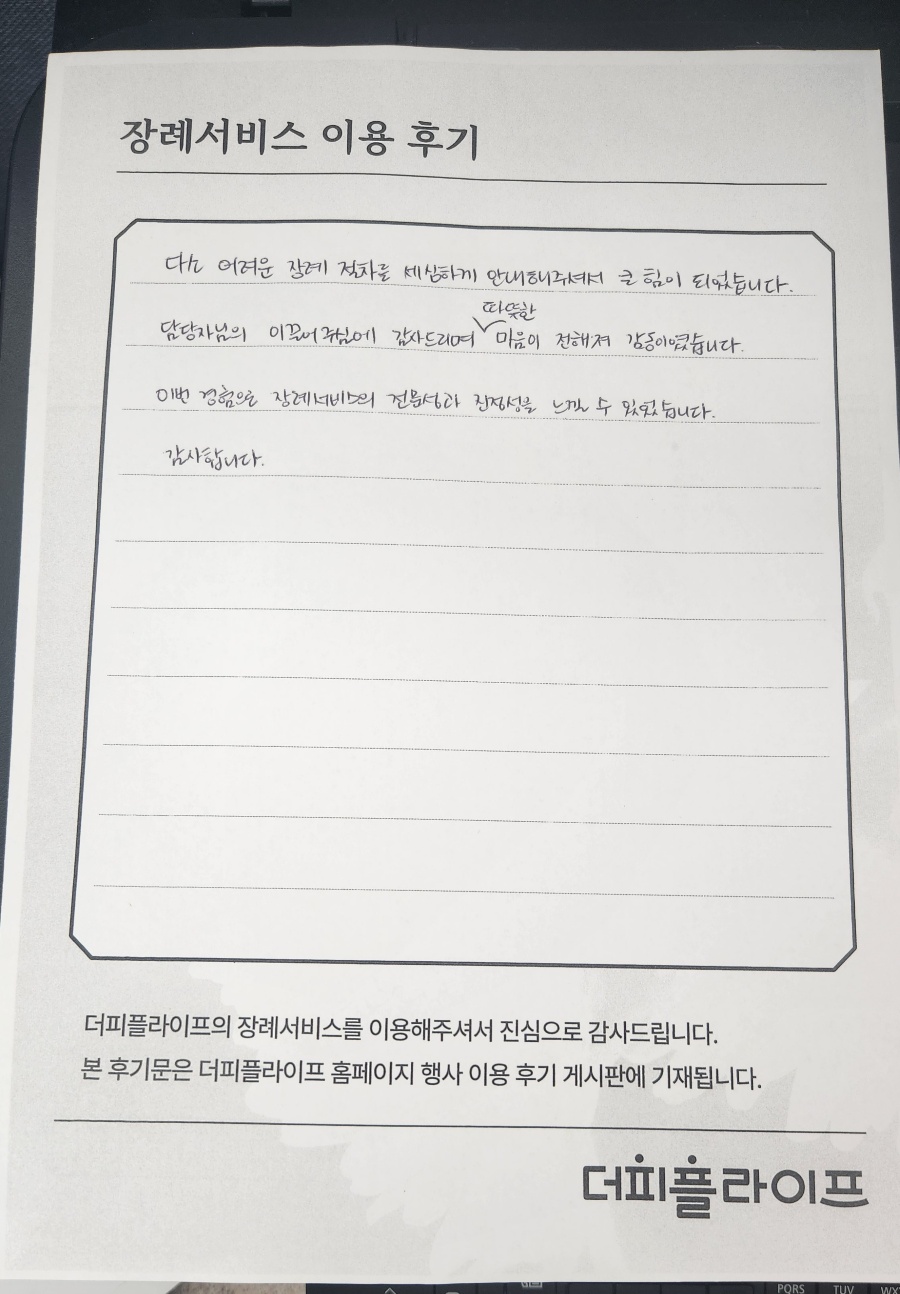 장례서비스 이용 후기
다소 어려운 장례 절차를 세심하게 안내해주셔서 큰 힘이 되었습니다.
따뜻한
담당자님의 이끌어주심에 감사드리며 마음이 전해져 감동이였습니다.
이번 경험으로 장례서비스의 전문성과 진정성을 느낄 수 있었습니다.
감사합니다.
더피플라이프의 장례서비스를 이용해주셔서 진심으로 감사드립니다.
본 후기문은 더피플라이프 홈페이지 행사 이용 후기 게시판에 기재됩니다.
더피플라이프
PQRS TUV WX